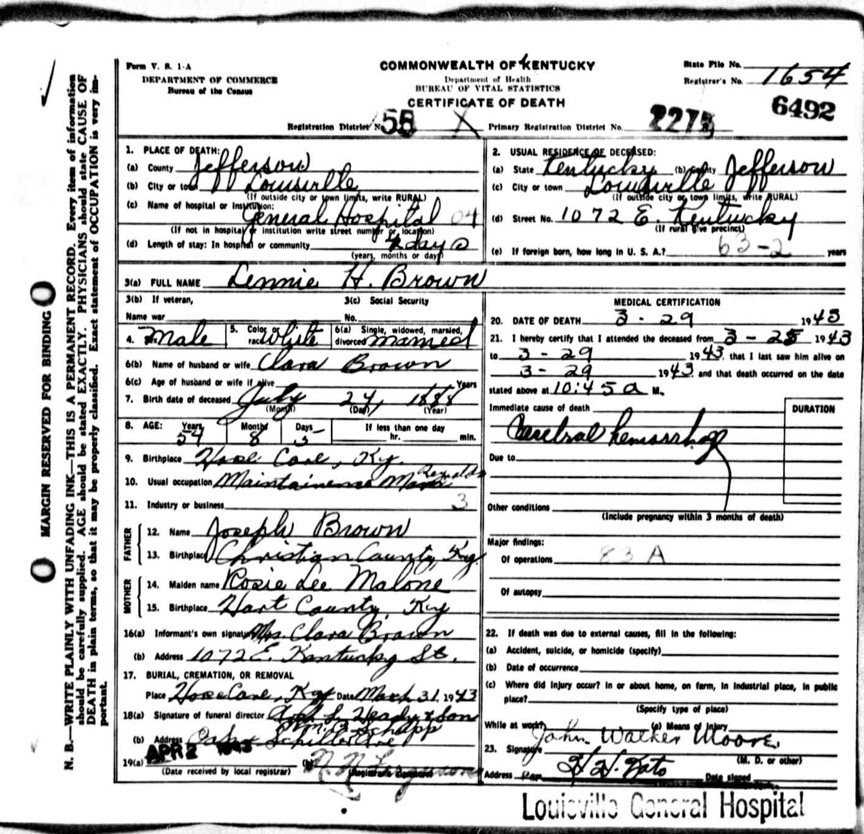 Form V. S. 1-A
DEPARTMENT OF COMMERCE
Bureau of the Census
COMMONWEALTH OF KENTUCKY
Department of Health
BUREAU OF VITAL STATISTICS
CERTIFICATE OF DEATH
State File No.
Registrar's No. 1654
6492
Registration District No. 55 X Primary Registration District No. 2275
MARGIN RESERVED FOR BINDING
N. B.—WRITE PLAINLY WITH UNFADING INK—THIS IS A PERMANENT RECORD. Every item of information
should be carefully supplied. AGE should be stated EXACTLY. PHYSICIANS should state CAUSE OF
DEATH in plain terms, so that it may be properly classified. Exact statement of OCCUPATION is very im-
portant.
1. PLACE OF DEATH:
(a) County Jefferson
(b) City or town Louisville
(If outside city or town limits, write RURAL)
(c) Name of hospital or institution:
General Hospital 04
(If not in hospital or institution write street number or location)
(d) Length of stay: In hospital or community 4 days
(years, months or days)
2. USUAL RESIDENCE OF DECEASED:
(a) State Kentucky (b) County Jefferson
(c) City or town Louisville
(If outside city or town limits, write RURAL)
(d) Street No. 1072 E. Kentucky
(If rural give precinct)
63-2
(e) If foreign born, how long in U. S. A.? years
3(a) FULL NAME Lennie H. Brown
3(b) If veteran,
Name war
3(c) Social Security
No.
4. Male 5. Color or race white 6(a) Single, widowed, married, divorced married
6(b) Name of husband or wife Clara Brown
6(c) Age of husband or wife if alive Years
7. Birth date of deceased July 24, 1888
(Month) (Day) (Year)
8. AGE: Years 54 Months 8 Days 5 If less than one day
hr. min.
9. Birthplace Horse Cave, Ky.
10. Usual occupation Maintainence Man
11. Industry or business 3
FATHER
12. Name Joseph Brown
13. Birthplace Christian County, Ky
MOTHER
14. Maiden name Rosie Lee Malone
15. Birthplace Hart County Ky
16(a) Informant's own signature Mrs Clara Brown
(b) Address 1072 E. Kentucky St.
17. BURIAL, CREMATION, OR REMOVAL
Place Horse Cave, Ky Date March 31, 1943
18(a) Signature of funeral director L. Heady & Son
(b) Address
19(a) APR 2 1943
(Date received by local registrar)
MEDICAL CERTIFICATION
20. DATE OF DEATH 3-29 1943
21. I hereby certify that I attended the deceased from 3-25 1943
to 3-29 1943, that I last saw him alive on
3-29 1943, and that death occurred on the date
stated above at 10:45 a M.
Immediate cause of death DURATION
Cerebral hemorrhage
Due to
Other conditions
(Include pregnancy within 3 months of death)
Major findings:
Of operations 83 A
Of autopsy
22. If death was due to external causes, fill in the following:
(a) Accident, suicide, or homicide (specify)
(b) Date of occurrence
(c) Where did injury occur? In or about home, on farm, in industrial place, in public
place?
(Specify type of place)
While at work? (e) Means of injury
23. Signature John Walker Moore
(M. D. or other)
Address Date signed
Louisville General Hospital